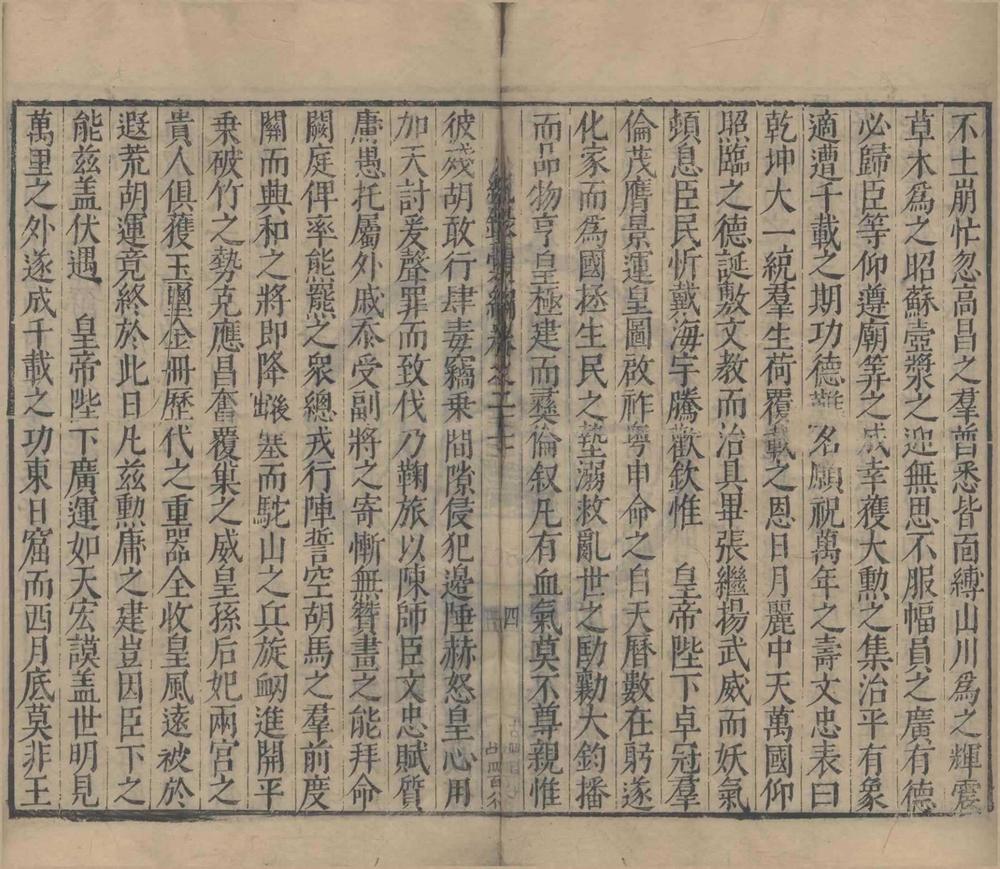 不土崩忙忽高昌之羣酋悉皆面縛山川爲之輝震
草木爲之昭蘇壺漿之迎無思不服幅員之廣有德
必歸臣等仰遵廟筭之成幸獲大勲之集治平有象
適遭千載之期功德難名願祝萬年之壽文忠表曰
乾坤大一統羣生荷覆載之恩日月麗中天萬國仰
照臨之德誕敷文教而治具畢張繼揚武威而妖氣
頓息臣民忻戴海宇騰歡欽惟 皇帝陛下卓冠羣
倫茂膺景運皇圖啟祚粤申命之自天曆數在躬遂
化家而爲國拯生民之墊溺救亂世之劻勷大鈞播
而品物亨皇極建而彛倫叙凡有血氣莫不尊親惟
卷之二十七
四
彼殘胡敢行肆毒竊乗間隙侵犯邊陲赫怒皇心用
加天討爰聲罪而致伐乃鞠旅以陳師臣文忠賦質
庸愚托屬外戚忝受副將之寄慚無贊畫之能拜命
闕庭俾率熊羆之衆總戎行陣誓空胡馬之羣前度
關而興和之將即降後出塞而駝山之兵旋衂進開平
乗破竹之勢克應昌奮覆巢之威皇孫后妃兩宮之
貴人俱獲玉璽金冊歷代之重器全收皇風遠被於
遐荒胡運竟終於此日凡兹勲庸之建豈因臣下之
能兹盖伏遇 皇帝陛下廣運如天宏謨盖世明見
萬里之外遂成千載之功東日窟而西月底莫非王